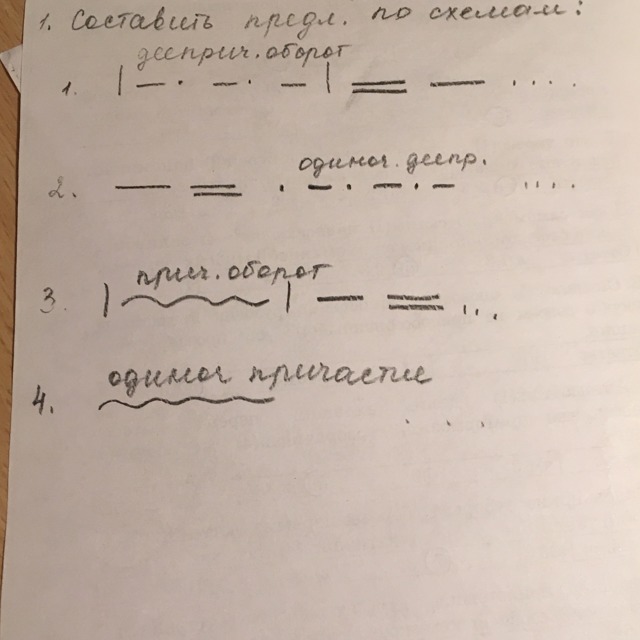 1. Составить предл. по схемам:
дееприч. оборот
1. ....
одиноч. деепр.
2. ....
прич. оборот
3 ...
одиноч причастие
4. ....